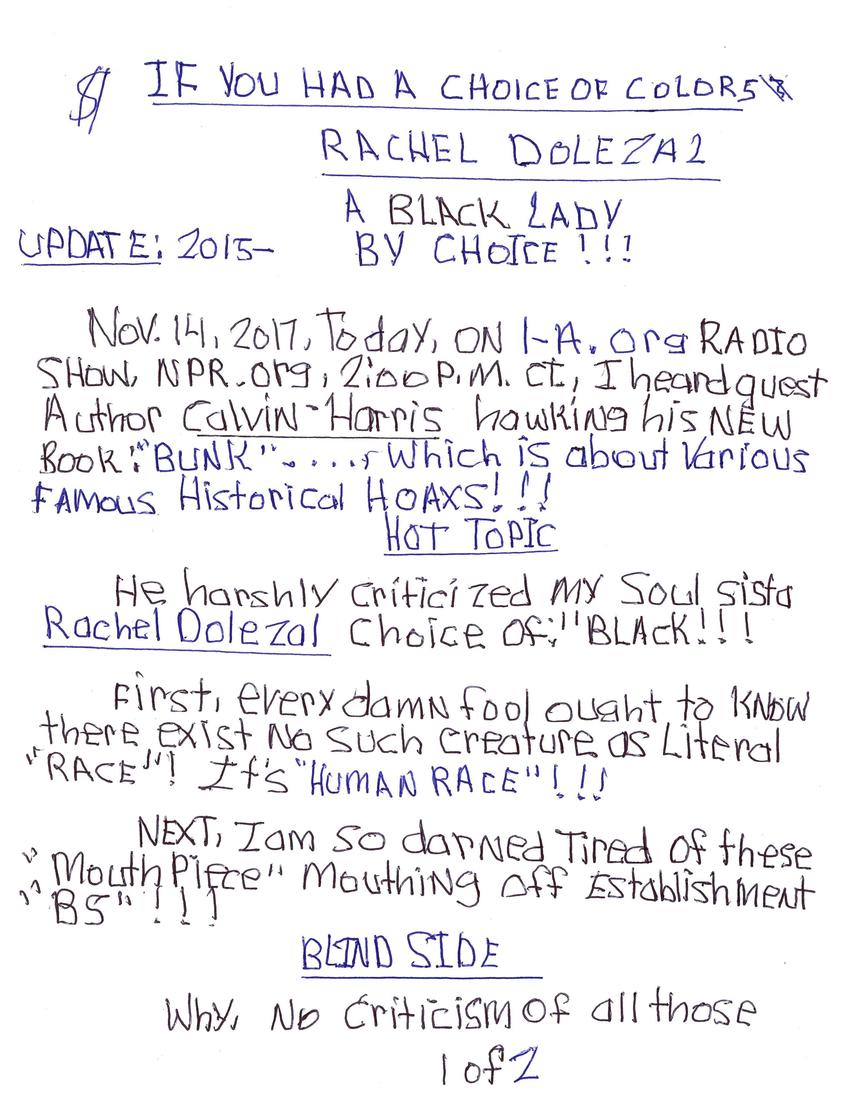 $ IF YOU HAD A CHOICE OF COLORS
RACHEL DOLEZAL
A BLACK LADY
UPDATE: 2015- BY CHOICE!!!
Nov. 14, 2017, Today, ON 1-A.org RADIO
SHOW, NPR.org, 2:00 P.M. CT, I heard guest
Author Calvin-Harris hawking his NEW
Book: "BUNK"....., Which is about Various
FAMOUS Historical HOAXS!!!
HOT TOPIC
He harshly criticized MY Soul sista
Rachel Dolezal Choice Of: "BLACK!!!
First, every damN fool ought to KNOW
there exist No Such Creature as Literal
"RACE"! It's "HUMAN RACE"!!!
NEXT, I am so darNed Tired Of these
"Mouth Piece" Mouthing Off Establishment
"BS"!!!
BLIND SIDE
Why, No Criticism Of all those
1 of 2